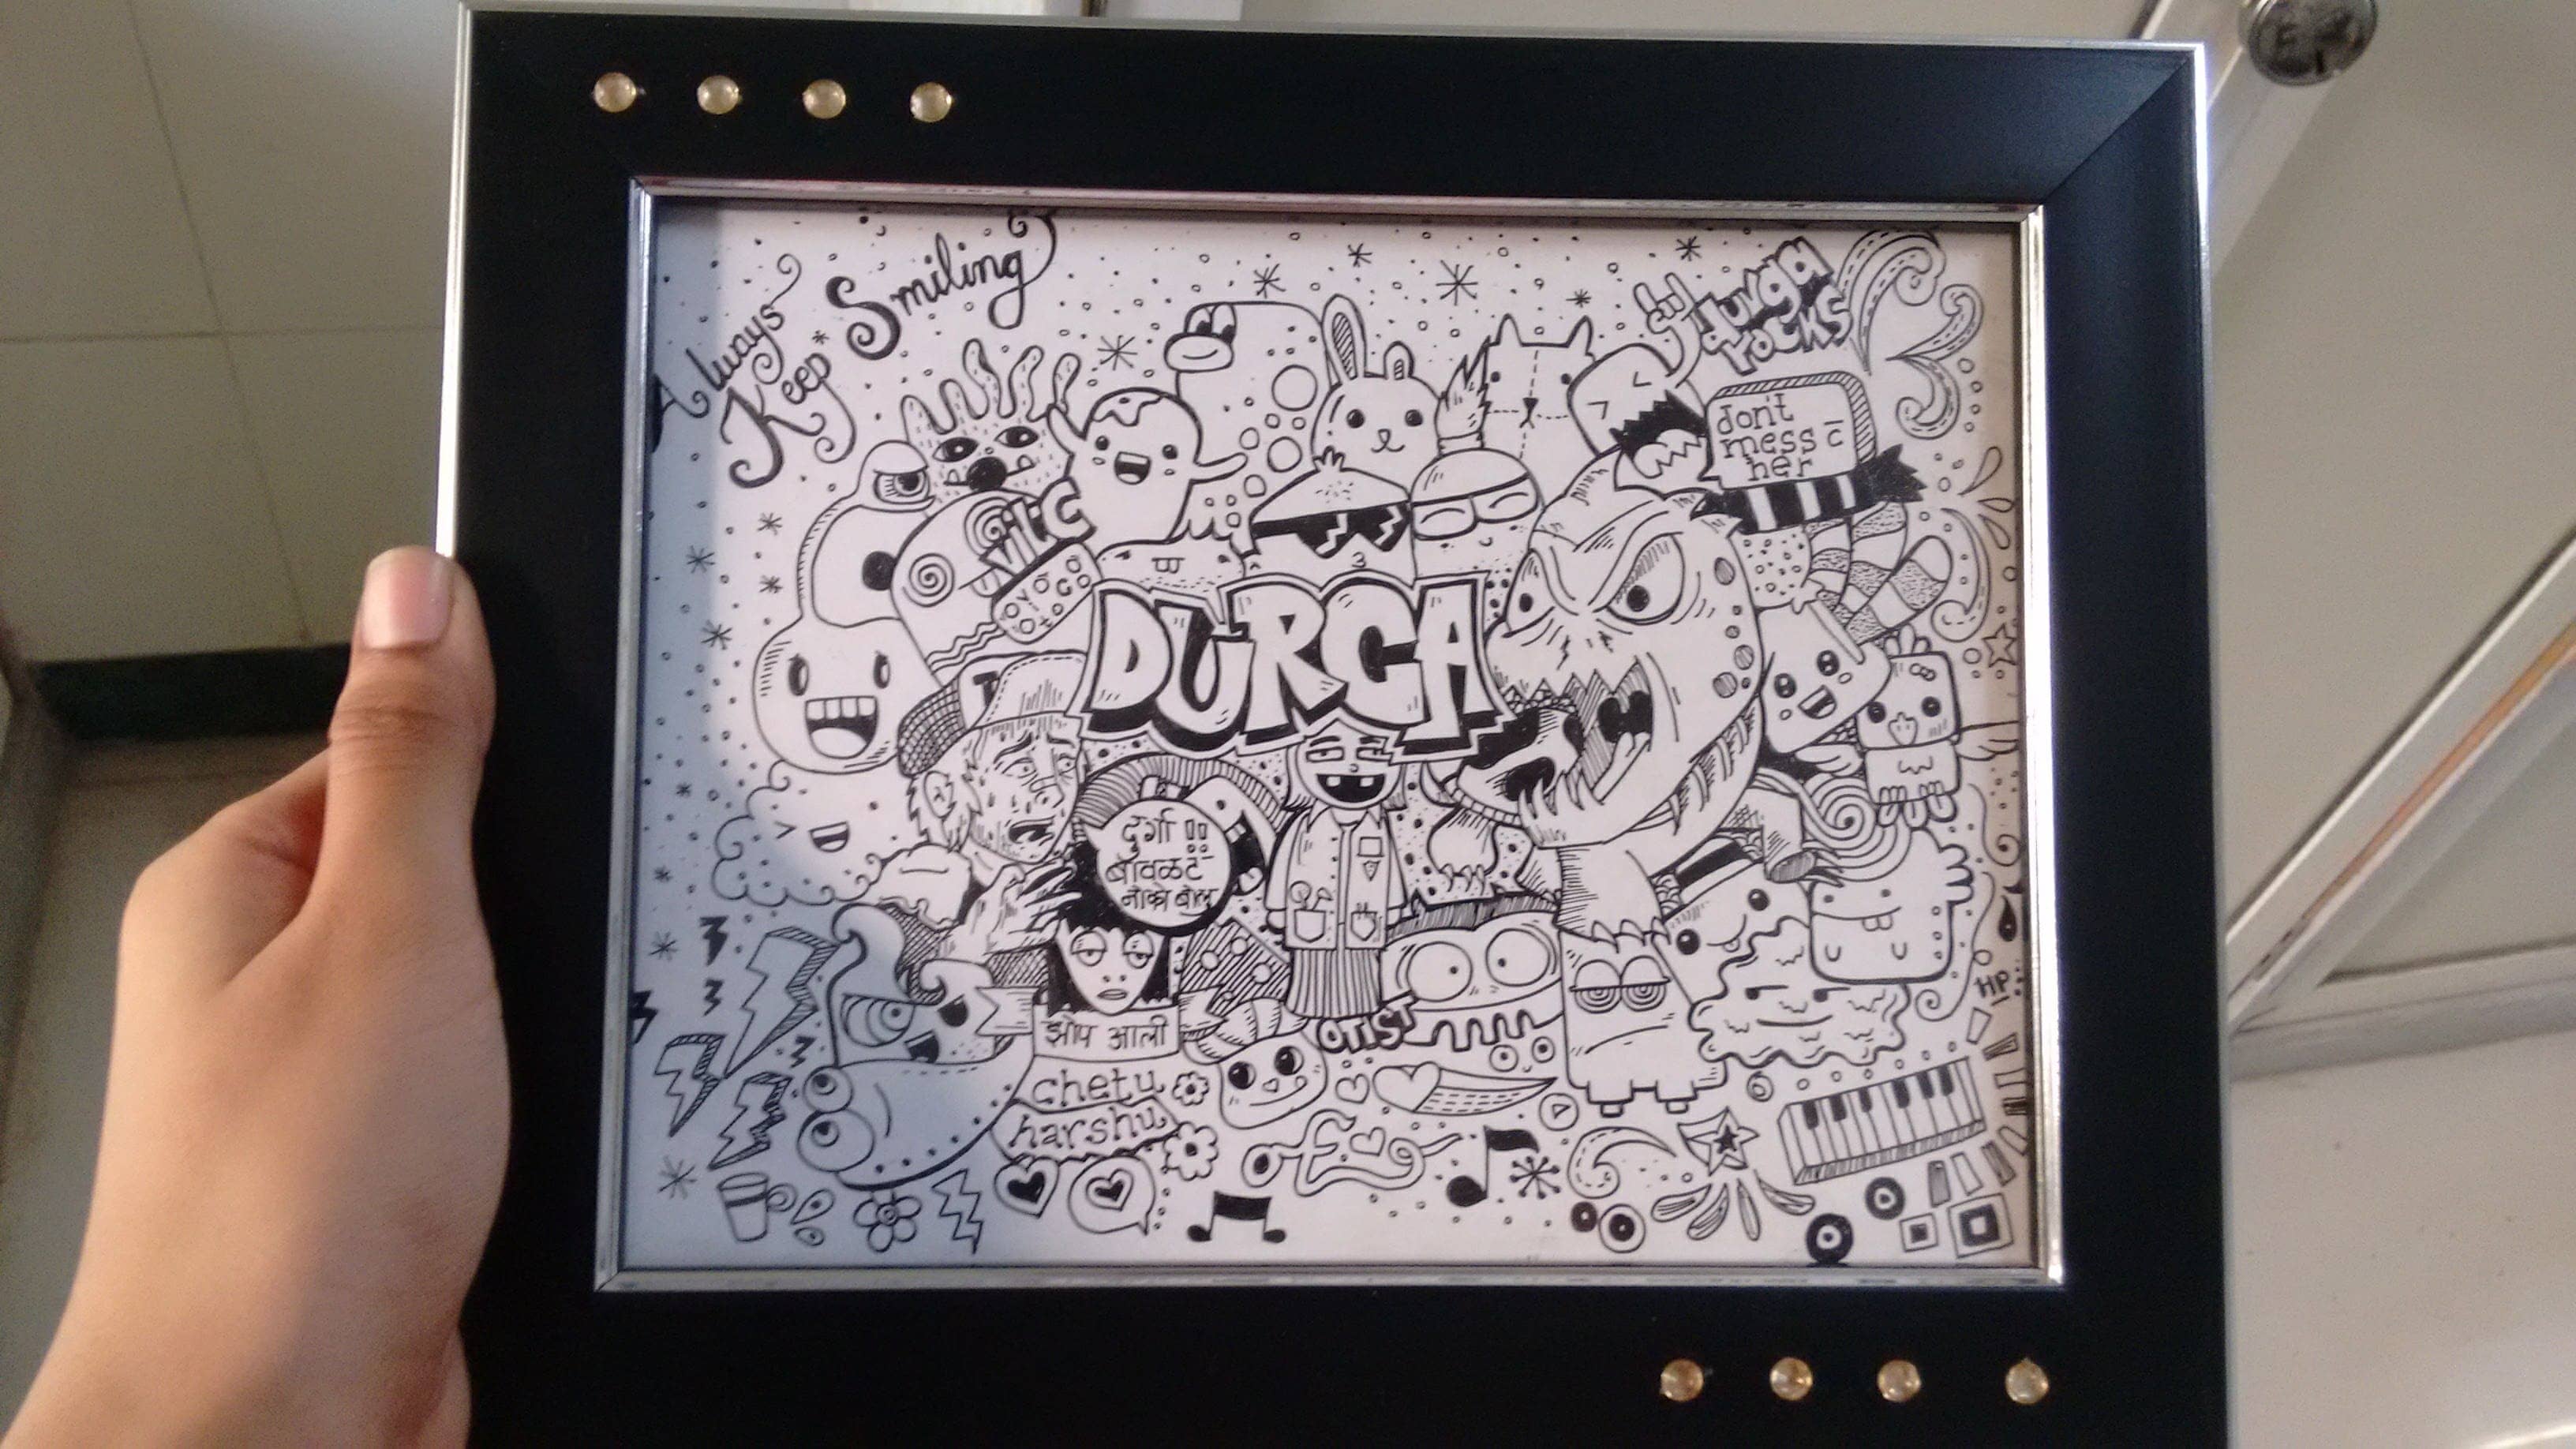 Always
Keep
Smiling
durga
rocks
don't
mess c̄
her
DURGA
दुर्गा !!
बावळट
नोको बोलू
झोप आली
OTIST
chetu
harshu
HP